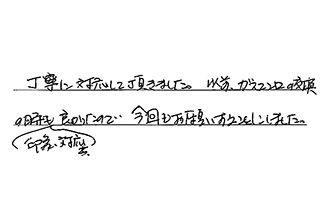 丁寧に対応して頂きました。以前、ガスコンロの交換
の時も良かったので、今回もお願いすることにしました。
(印象、対応)